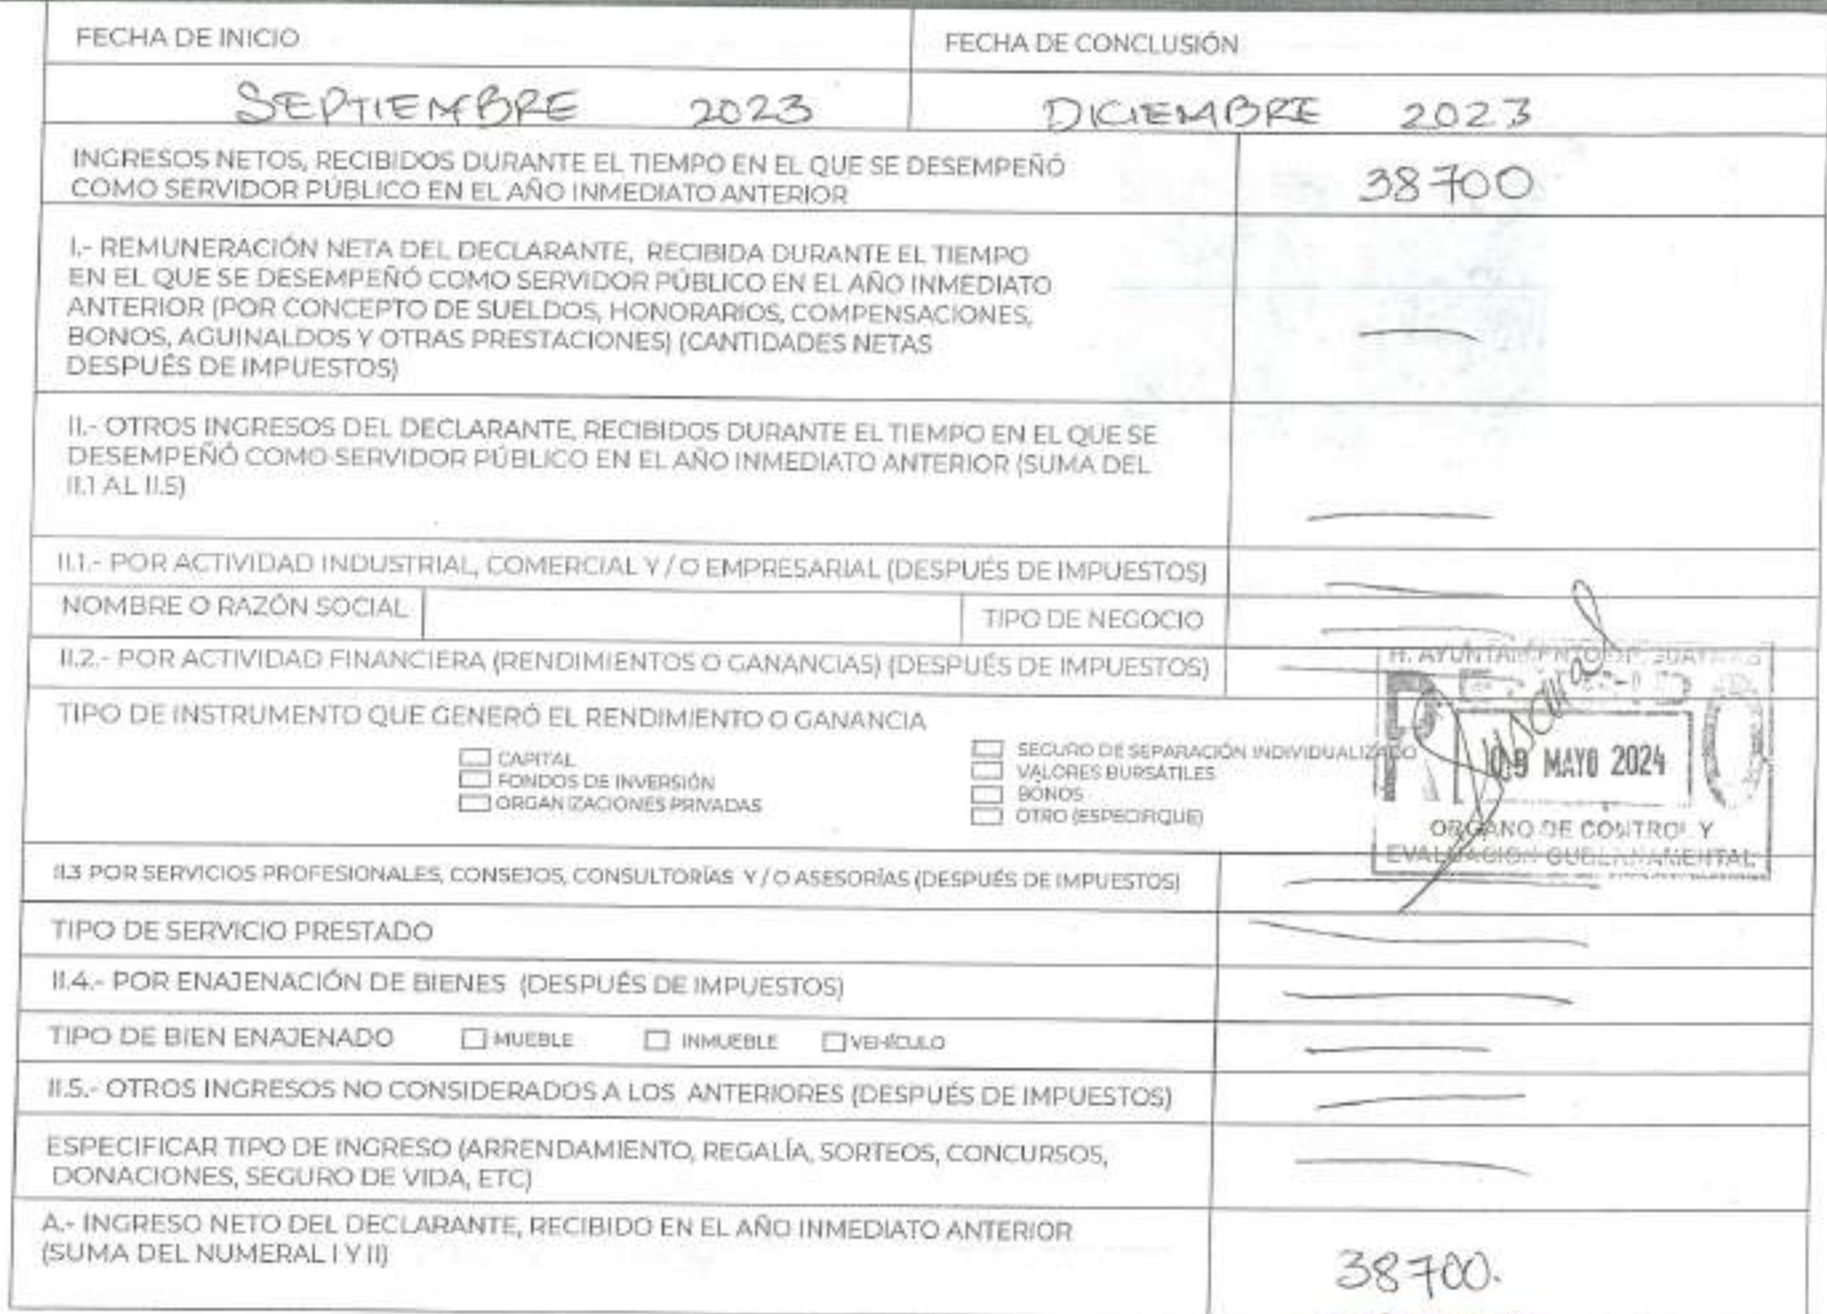 FECHA DE INICIO
FECHA DE CONCLUSIÓN
SEPTIEMBRE 2023
DICIEMBRE 2023
INGRESOS NETOS, RECIBIDOS DURANTE EL TIEMPO EN EL QUE SE DESEMPEÑÓ
COMO SERVIDOR PÚBLICO EN EL AÑO INMEDIATO ANTERIOR
38700
I.- REMUNERACIÓN NETA DEL DECLARANTE, RECIBIDA DURANTE EL TIEMPO
EN EL QUE SE DESEMPEÑÓ COMO SERVIDOR PÚBLICO EN EL AÑO INMEDIATO
ANTERIOR (POR CONCEPTO DE SUELDOS, HONORARIOS, COMPENSACIONES,
BONOS, AGUINALDOS Y OTRAS PRESTACIONES) (CANTIDADES NETAS
DESPUÉS DE IMPUESTOS)
II.- OTROS INGRESOS DEL DECLARANTE, RECIBIDOS DURANTE EL TIEMPO EN EL QUE SE
DESEMPEÑÓ COMO SERVIDOR PÚBLICO EN EL AÑO INMEDIATO ANTERIOR (SUMA DEL
II.1 AL II.5)
II.1.- POR ACTIVIDAD INDUSTRIAL, COMERCIAL Y / O EMPRESARIAL (DESPUÉS DE IMPUESTOS)
NOMBRE O RAZÓN SOCIAL
TIPO DE NEGOCIO
II.2.- POR ACTIVIDAD FINANCIERA (RENDIMIENTOS O GANANCIAS) (DESPUÉS DE IMPUESTOS)
H. AYUNTAMIENTO DE GUAYMAS
TIPO DE INSTRUMENTO QUE GENERÓ EL RENDIMIENTO O GANANCIA
CAPITAL
FONDOS DE INVERSIÓN
ORGANIZACIONES PRIVADAS
SEGURO DE SEPARACIÓN INDIVIDUALIZADO
VALORES BURSÁTILES
BONOS
OTRO (ESPECIFIQUE)
09 MAYO 2024
ORGANO DE CONTROL Y
EVALUACION GUBERNAMENTAL
II.3 POR SERVICIOS PROFESIONALES, CONSEJOS, CONSULTORÍAS Y / O ASESORÍAS (DESPUÉS DE IMPUESTOS)
TIPO DE SERVICIO PRESTADO
II.4.- POR ENAJENACIÓN DE BIENES (DESPUÉS DE IMPUESTOS)
TIPO DE BIEN ENAJENADO MUEBLE INMUEBLE VEHÍCULO
II.5.- OTROS INGRESOS NO CONSIDERADOS A LOS ANTERIORES (DESPUÉS DE IMPUESTOS)
ESPECIFICAR TIPO DE INGRESO (ARRENDAMIENTO, REGALÍA, SORTEOS, CONCURSOS,
DONACIONES, SEGURO DE VIDA, ETC)
A.- INGRESO NETO DEL DECLARANTE, RECIBIDO EN EL AÑO INMEDIATO ANTERIOR
(SUMA DEL NUMERAL I Y II)
38700.